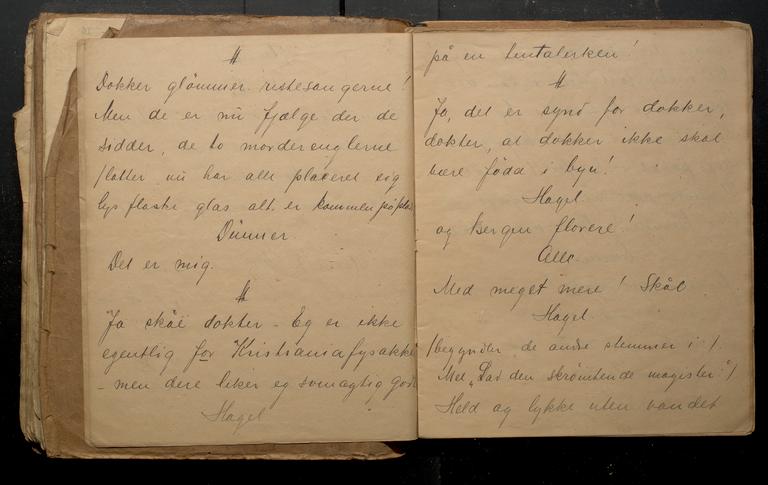 #
Dokker glömmer restesangerne!
Men de er nu fjælge der de
sidder, de to mordereuglerne
/latter nu har alle placeret sig
lys flaske glas alt er kommen på plas
Dünner
Det er mig.
#
Ja skål dokter - Eg er ikke
egentlig for Kristianiafysakke
- men dere liker eg somagtig godt
Hagel
på en tentalerken!
#
Ja, det er synd for dokker,
dokter, at dokker ikke skal
være född i byn!
Hagel
og Bergen florere!
Alle.
Med meget mere! Skål
Hagel
/begynder, de andre stemmer i /
Mel „Lad den skrömtende magister" /
Held og lykke uten vandet